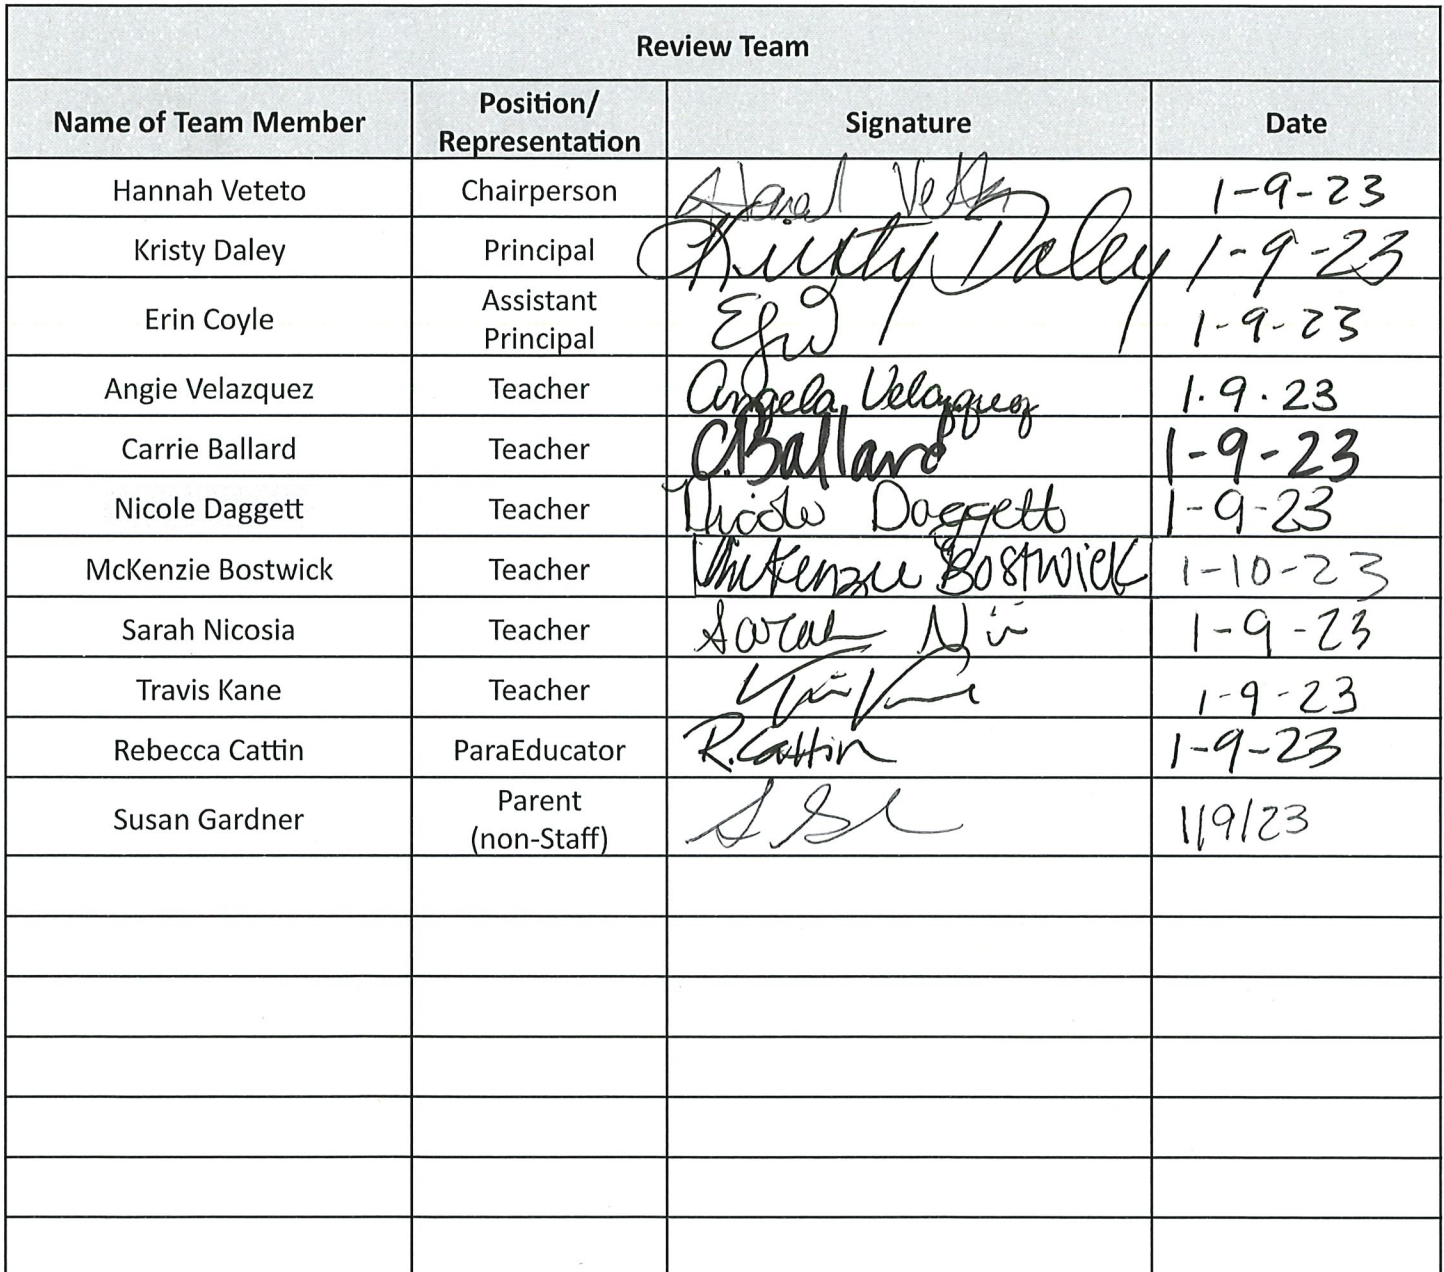 Review Team
Name of Team Member Position/ Representation Signature Date
Hannah Veteto Chairperson 1-9-23
Kristy Daley Principal Kristy Daley 1-9-23
Erin Coyle Assistant Principal 1-9-23
Angie Velazquez Teacher Angela Velazquez 1.9.23
Carrie Ballard Teacher C.Ballard 1-9-23
Nicole Daggett Teacher Nicole Daggett 1-9-23
McKenzie Bostwick Teacher McKenzie Bostwick 1-10-23
Sarah Nicosia Teacher Sarah 1-9-23
Travis Kane Teacher 1-9-23
Rebecca Cattin ParaEducator R.Cattin 1-9-23
Susan Gardner Parent (non-Staff) 1/9/23